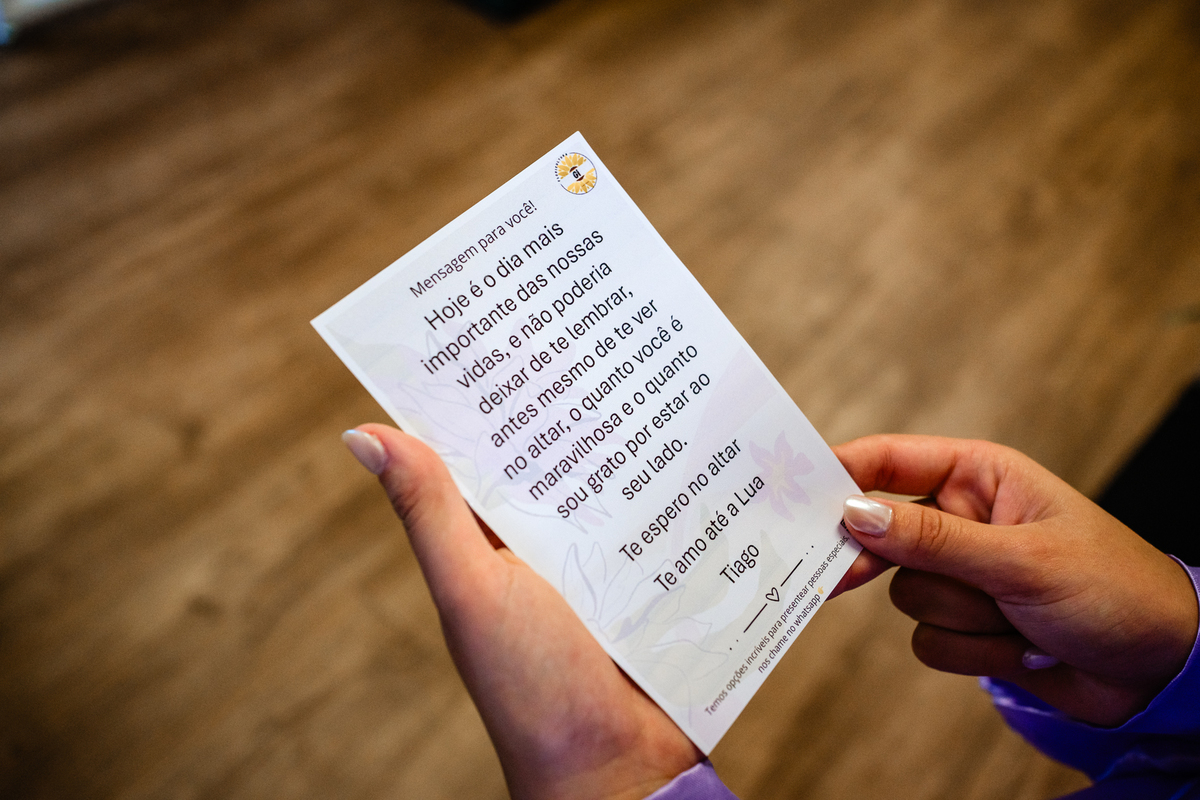 Mensagem para você!
Hoje é o dia mais
importante das nossas
vidas, e não poderia
deixar de te lembrar,
antes mesmo de te ver
no altar, o quanto você é
maravilhosa e o quanto
sou grato por estar ao
seu lado.
Te espero no altar
Te amo até a Lua
Tiago
Temos opções incríveis para presentear pessoas especiais,
nos chame no whatsapp